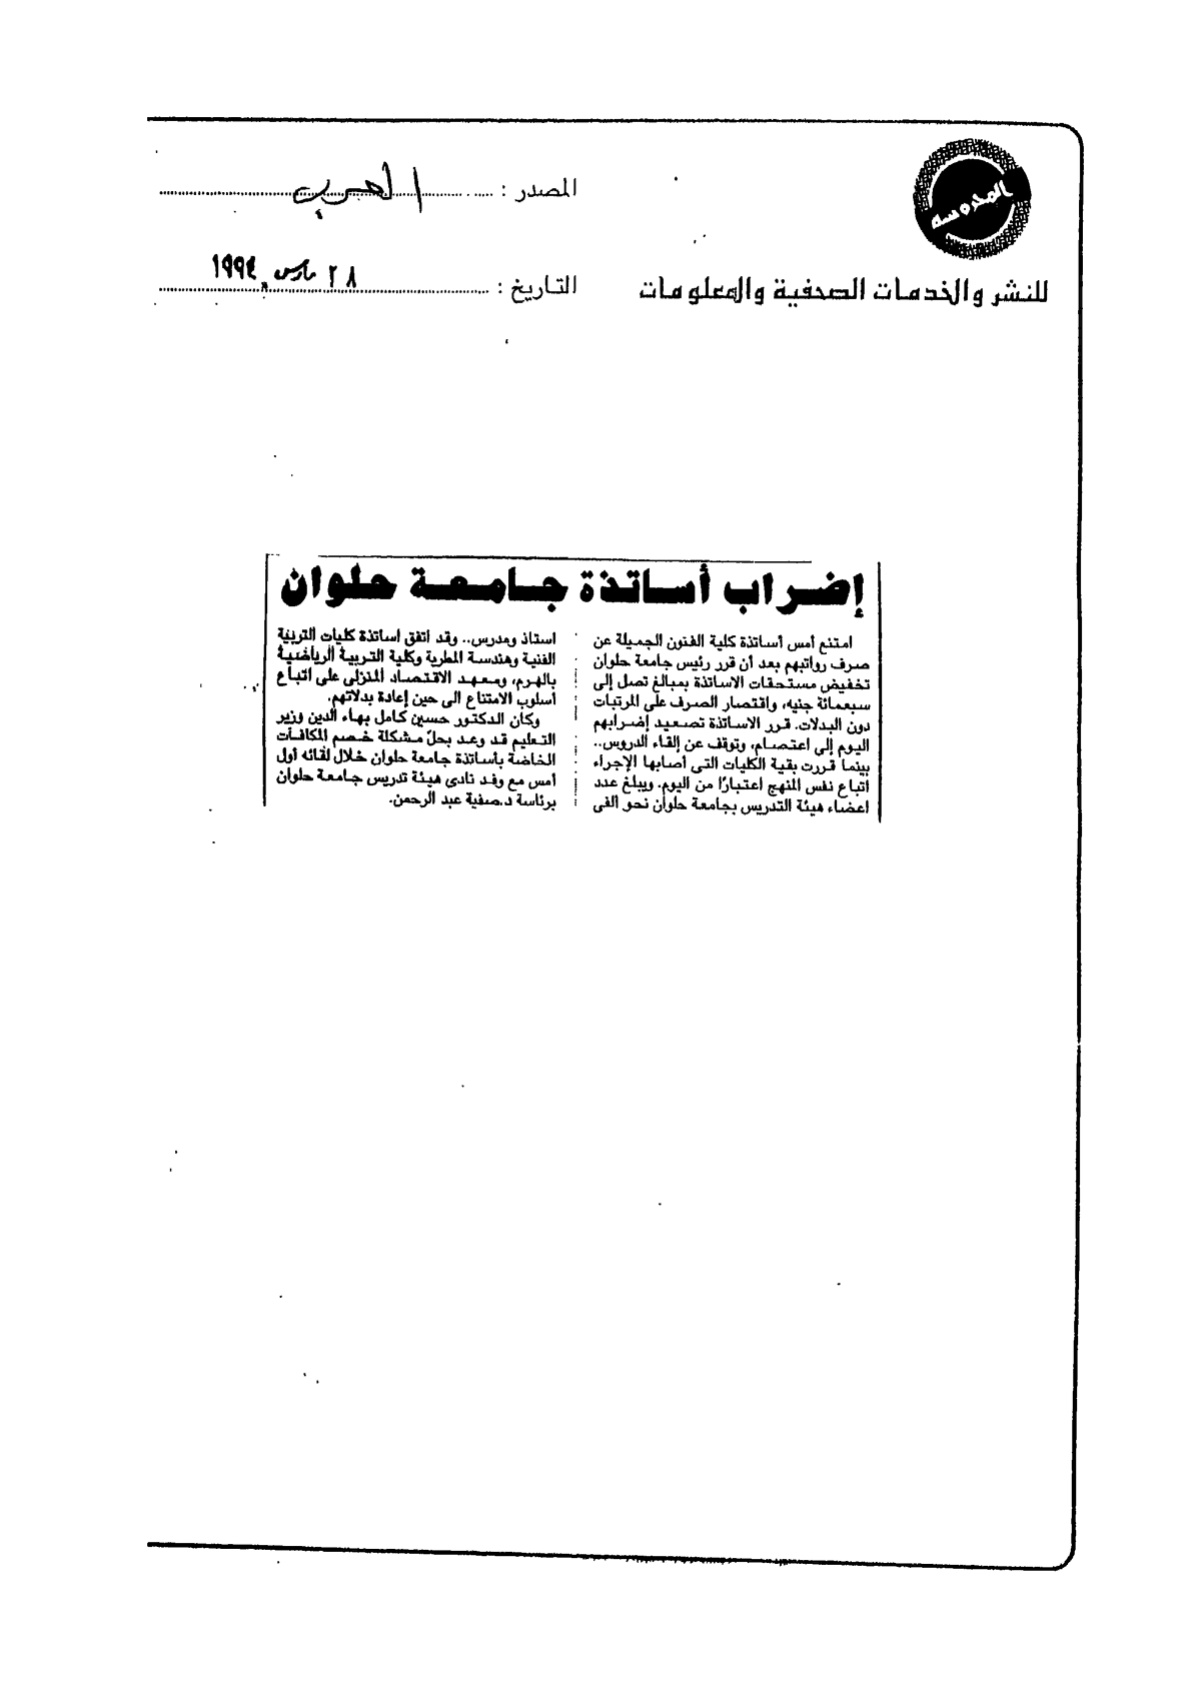 المحروسه
للنشر والخدمات الصحفية والمعلومات
المصدر : العرب
التاريخ : ٢٨ مارس ١٩٩٤
إضراب أساتذة جامعة حلوان
امتنع أمس أساتذة كلية الفنون الجميلة عن
صرف رواتبهم بعد أن قرر رئيس جامعة حلوان
تخفيض مستحقات الاساتذة بمبالغ تصل إلى
سبعمائة جنيه، واقتصار الصرف على المرتبات
دون البدلات. قرر الاساتذة تصعيد إضرابهم
اليوم إلى اعتصام، وتوقف عن إلقاء الدروس..
بينما قررت بقية الكليات التى أصابها الإجراء
اتباع نفس المنهج اعتبارًا من اليوم. ويبلغ عدد
اعضاء هيئة التدريس بجامعة حلوان نحو الفى
استاذ ومدرس.. وقد اتفق اساتذة كليات التربية
الفنية وهندسة المطرية وكلية التربية الرياضية
بالهرم، ومعهد الاقتصاد المنزلى على اتباع
أسلوب الامتناع الى حين إعادة بدلاتهم.
وكان الدكتور حسين كامل بهاء الدين وزير
التعليم قد وعد بحل مشكلة خصم المكافآت
الخاضة بأساتذة جامعة حلوان خلال لقائه أول
أمس مع وفد نادى هيئة تدريس جامعة حلوان
برئاسة د.صفية عبد الرحمن.